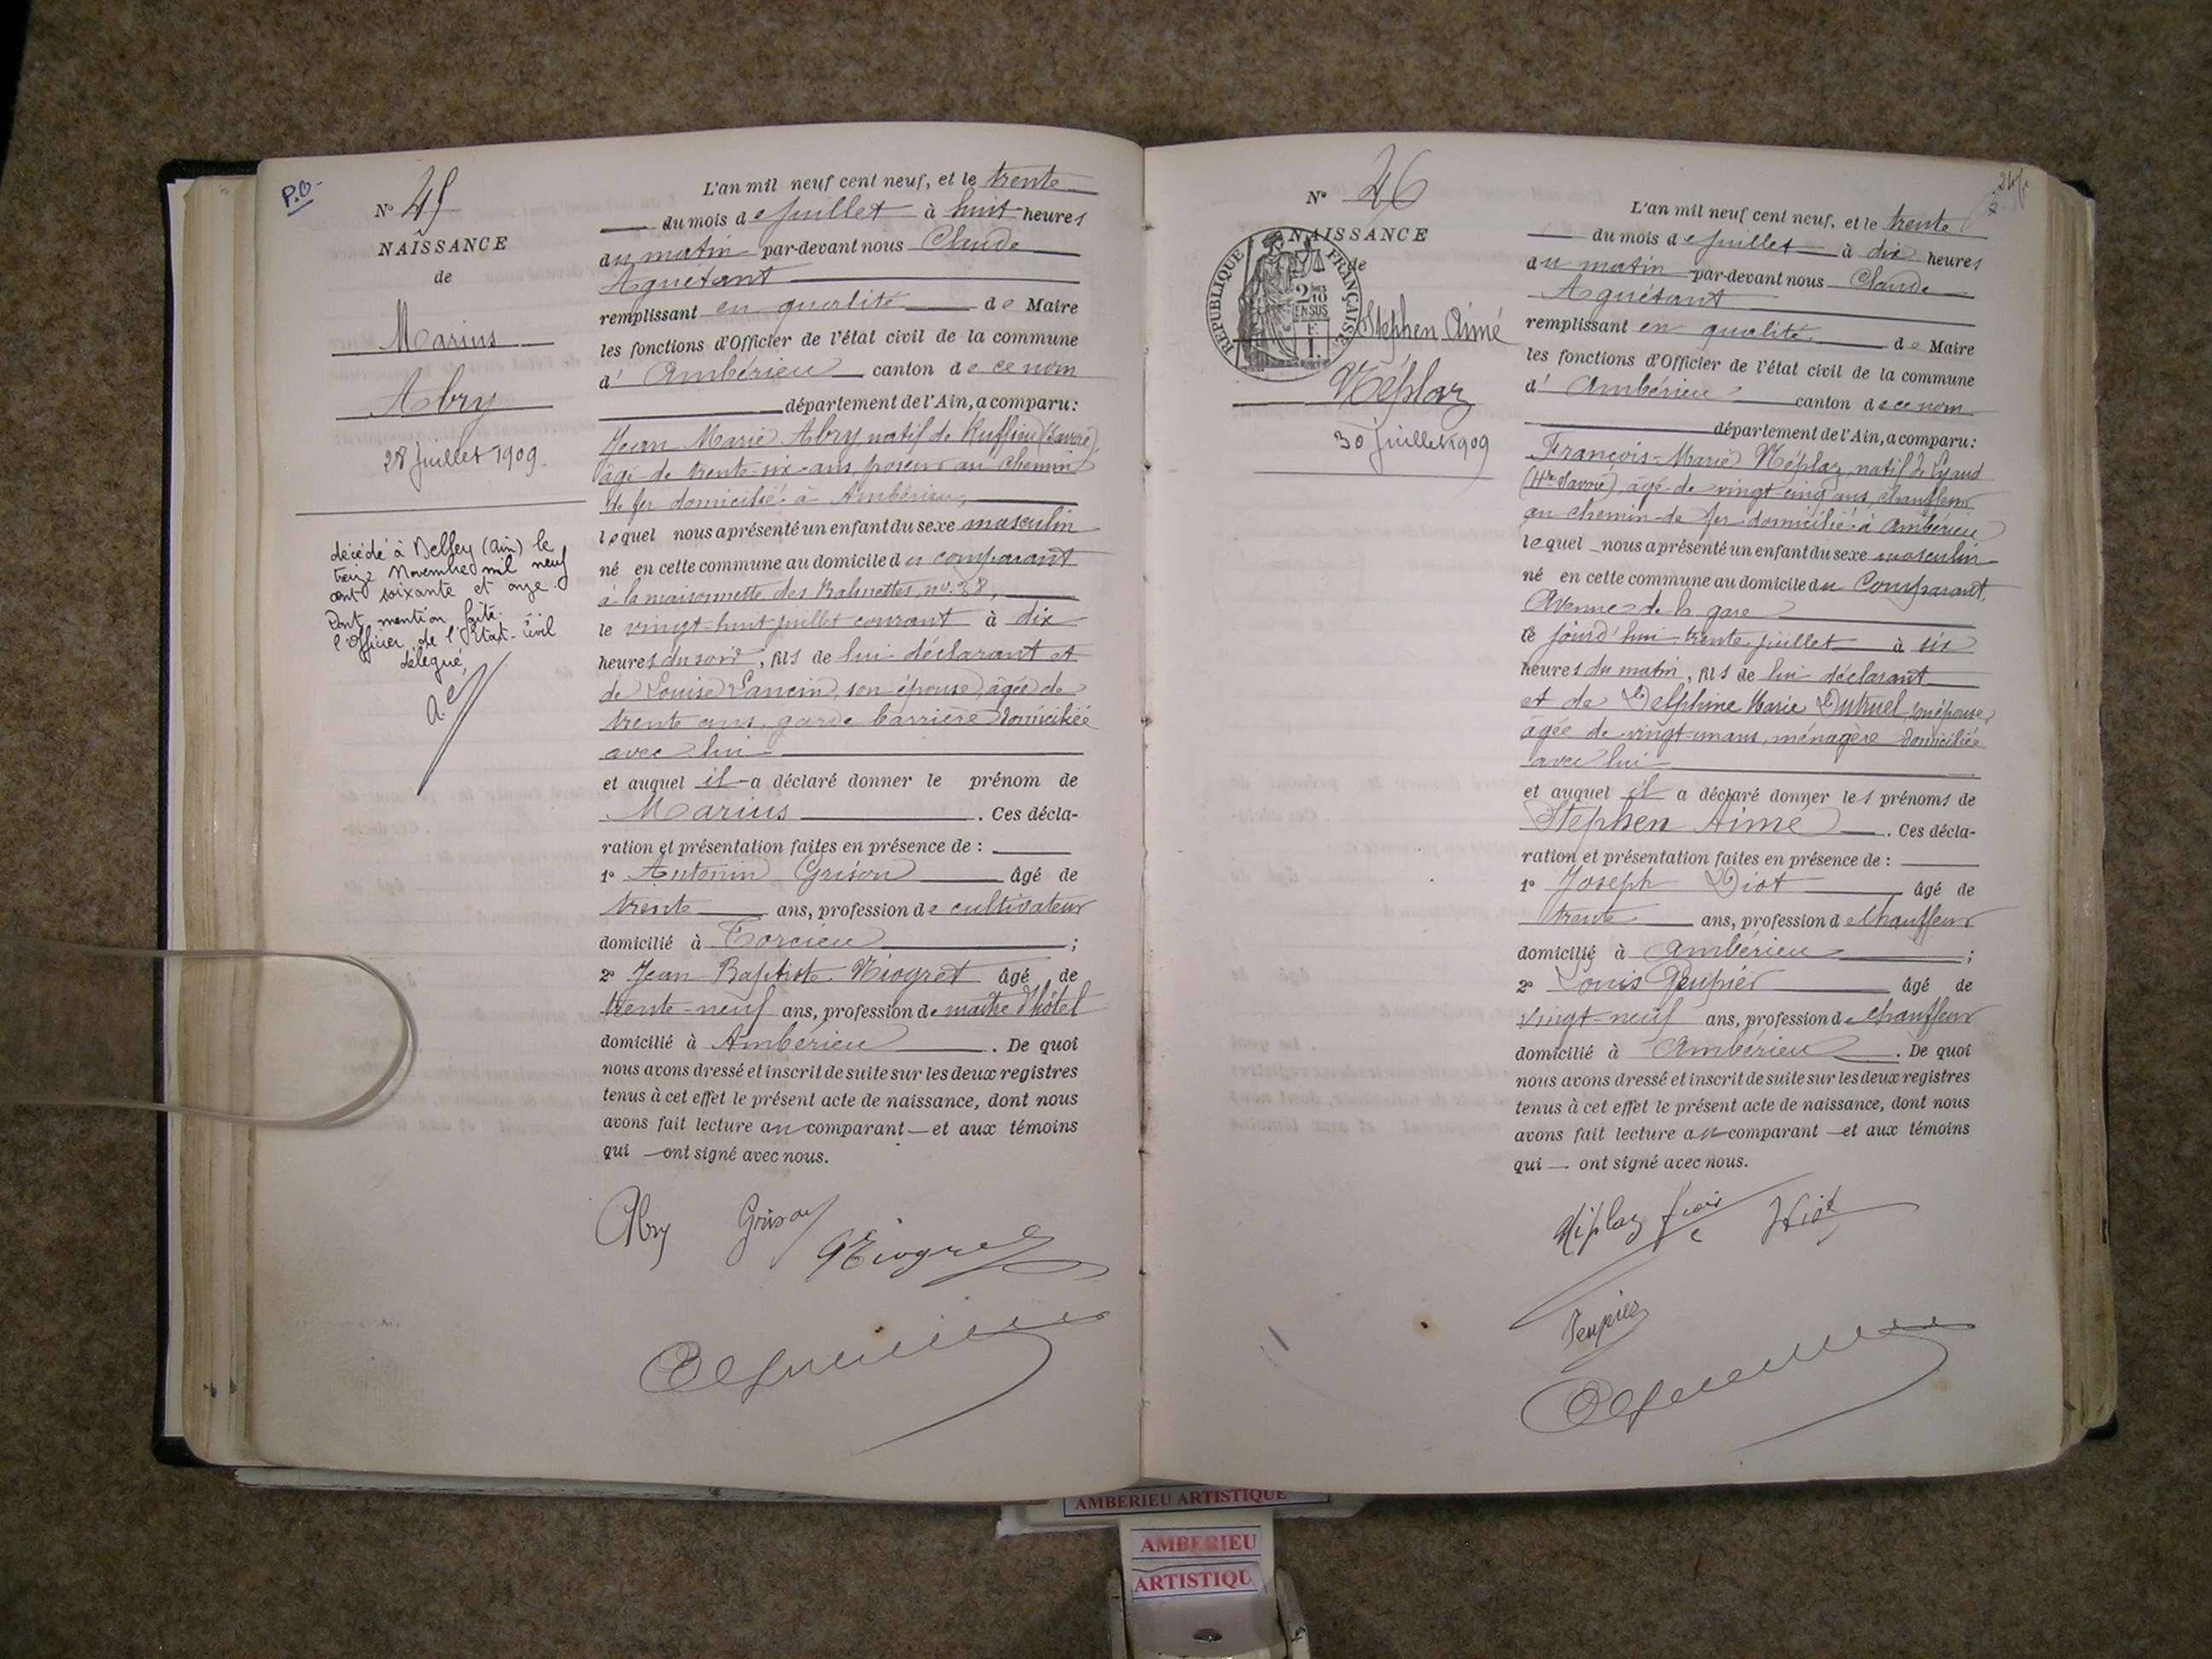 P.O.
N° 45
NAISSANCE
de
Marius
Abry
28 juillet 1909.
décédé à Belley (Ain) le
treize Novembre mil neuf
cent soixante et onze.
Dont mention faite.
l'Officier de l'Etat-Civil
délégué,
L'an mil neuf cent neuf, et le trente
du mois de juillet à huit heures
du matin par-devant nous Claude
Aguétant
remplissant en qualité de Maire
les fonctions d'Officier de l'état civil de la commune
d' Ambérieu canton de ce nom
département de l'Ain, a comparu:
Jean Marie Abry natif de Ruffieu (Savoie),
âgé de trente-six ans, poseur au chemin
de fer domicilié à Ambérieu,
lequel nous a présenté un enfant du sexe masculin
né en cette commune au domicile du comparant
à la maisonnette des Balmettes, n° 28,
le vingt-huit juillet courant à dix
heures du soir, fils de lui déclarant et
de Louise Lancin, son épouse, âgée de
trente ans, garde barrière domiciliée
avec lui
et auquel il a déclaré donner le prénom de
Marius . Ces décla-
ration et présentation faites en présence de :
1° Antonin Grison âgé de
trente ans, profession de cultivateur
domicilié à Torcieu ;
2° Jean Baptiste Niogret âgé de
trente-neuf ans, profession de maître d'hôtel
domicilié à Ambérieu . De quoi
nous avons dressé et inscrit de suite sur les deux registres
tenus à cet effet le présent acte de naissance, dont nous
avons fait lecture au comparant et aux témoins
qui ont signé avec nous.
Abry Grison
Niogret
N° 46
NAISSANCE
de
RÉPUBLIQUE FRANÇAISE
2/10
EN SUS
Stephen Aimé
Néplaz
30 juillet 1909
L'an mil neuf cent neuf, et le trente
du mois de juillet à dix heures
du matin par-devant nous Claude
Aguétant
remplissant en qualité de Maire
les fonctions d'Officier de l'état civil de la commune
d' Ambérieu canton de ce nom
département de l'Ain, a comparu:
François-Marie Néplaz, natif de Lyaud
(Hte Savoie), âgé de vingt cinq ans, chauffeur
au chemin de fer domicilié à Ambérieu
lequel nous a présenté un enfant du sexe masculin
né en cette commune au domicile du Comparant,
Avenue de la gare
le jourd'hui trente juillet à six
heures du matin, fils de lui déclarant
et de Delphine Marie Dutruel, son épouse,
âgée de vingt-un ans, ménagère domiciliée
avec lui
et auquel il a déclaré donner les prénoms de
Stephen Aimé . Ces décla-
ration et présentation faites en présence de :
1° Joseph Viot âgé de
trente ans, profession de chauffeur
domicilié à Ambérieu ;
2° Louis Peupier âgé de
vingt-neuf ans, profession de chauffeur
domicilié à Ambérieu . De quoi
nous avons dressé et inscrit de suite sur les deux registres
tenus à cet effet le présent acte de naissance, dont nous
avons fait lecture au comparant et aux témoins
qui ont signé avec nous.
Néplaz Viot
Peupier
AMBERIEU ARTISTIQUE
AMBERIEU
ARTISTIQU